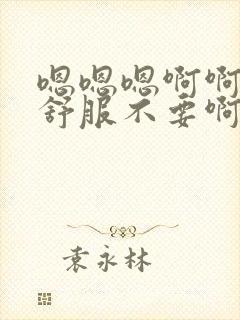 嗯嗯嗯啊啊
舒服不要啊
袁永林